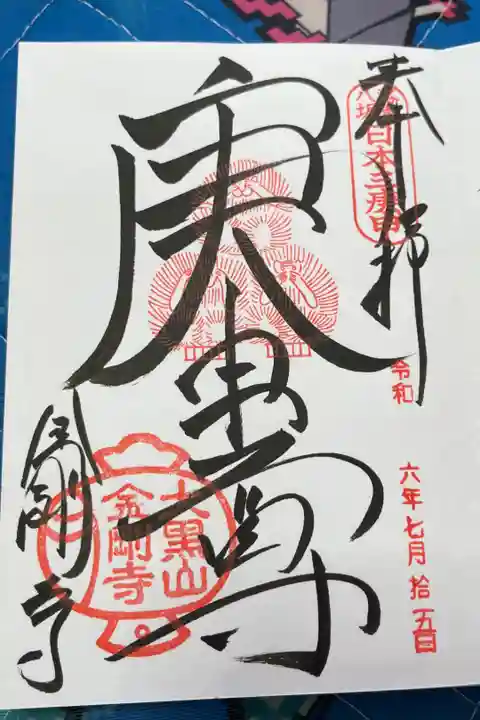 奉拝
八坂
日本三庚申
令和
六年七月拾五日
庚申尊
金剛寺
大黒山
金剛寺